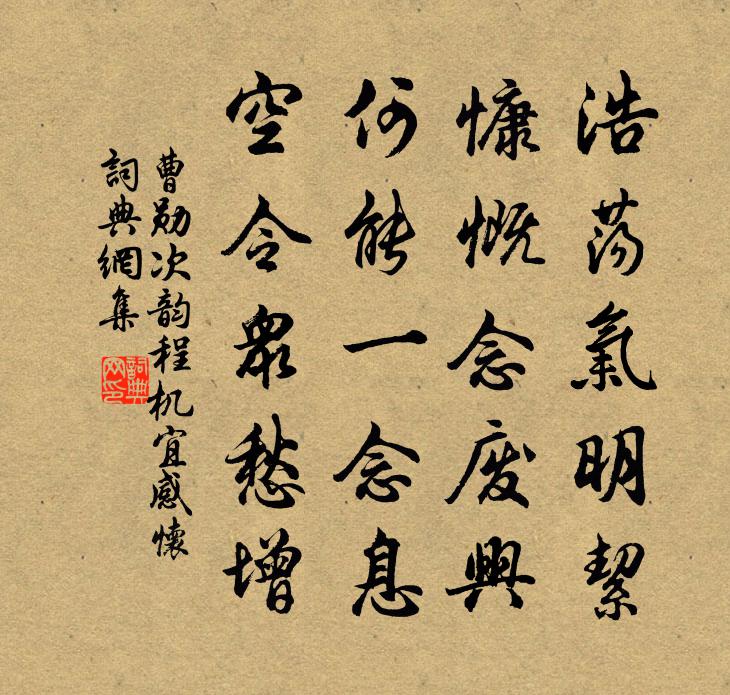 浩荡氣明潔
慷慨念廢興
何能一念息
空令眾愁增
曹勋次韵程机宜感懷
詞典網集
詞典网印